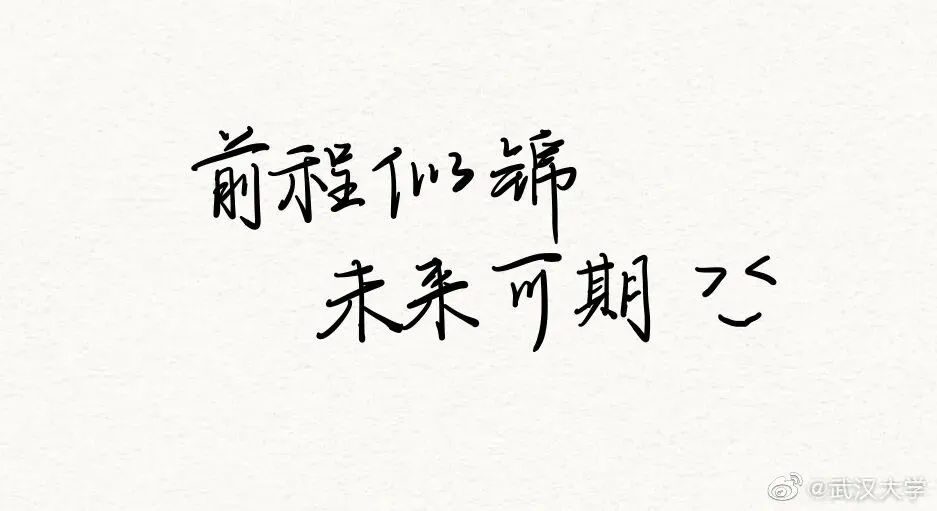 前程似锦
未来可期 ><
@武汉大学